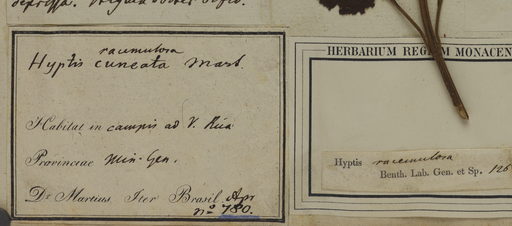 racemulosa
Hyptis cuneata Mart.
Habitat in campis ad V. Rica
Provinciae Min. Gen.
Dr Martius Iter Brasil
no 780.
HERBARIUM REGIUM MONACEN
Hyptis racemulosa
Benth. Lab. Gen. et Sp. 126